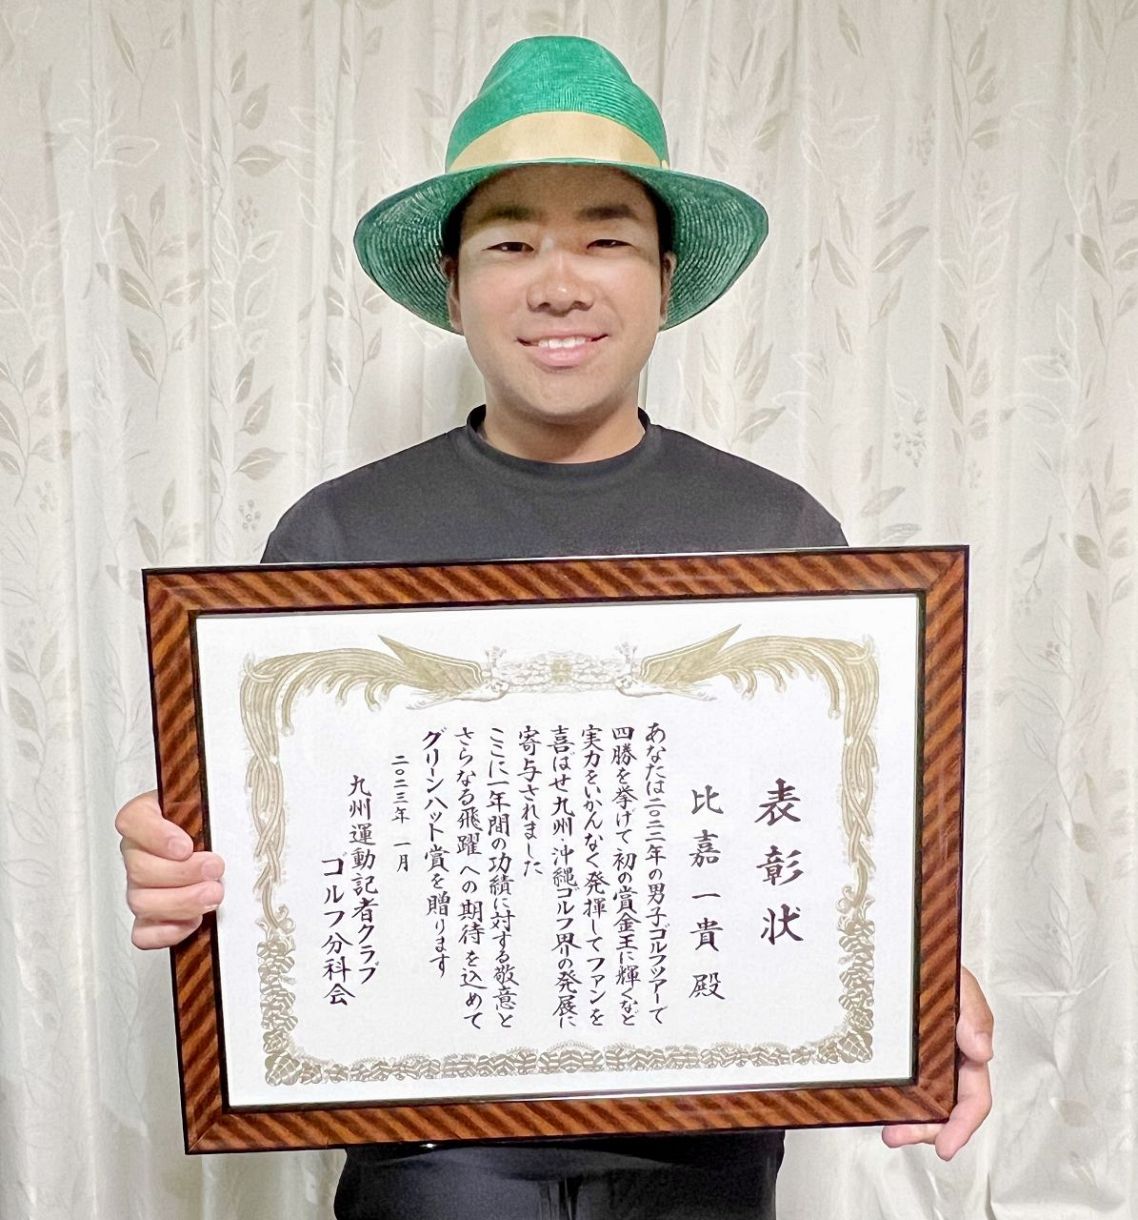 表彰状
比嘉一貴殿
あなたは二〇二二年の男子ゴルフツアーで
四勝を挙げて初の賞金王に輝くなど
実力をいかんなく発揮してファンを
喜ばせ九州・沖縄ゴルフ界の発展に
寄与されました
ここに一年間の功績に対する敬意と
さらなる飛躍への期待を込めて
グリーンハット賞を贈ります
二〇二三年一月
九州運動記者クラブ
ゴルフ分科会